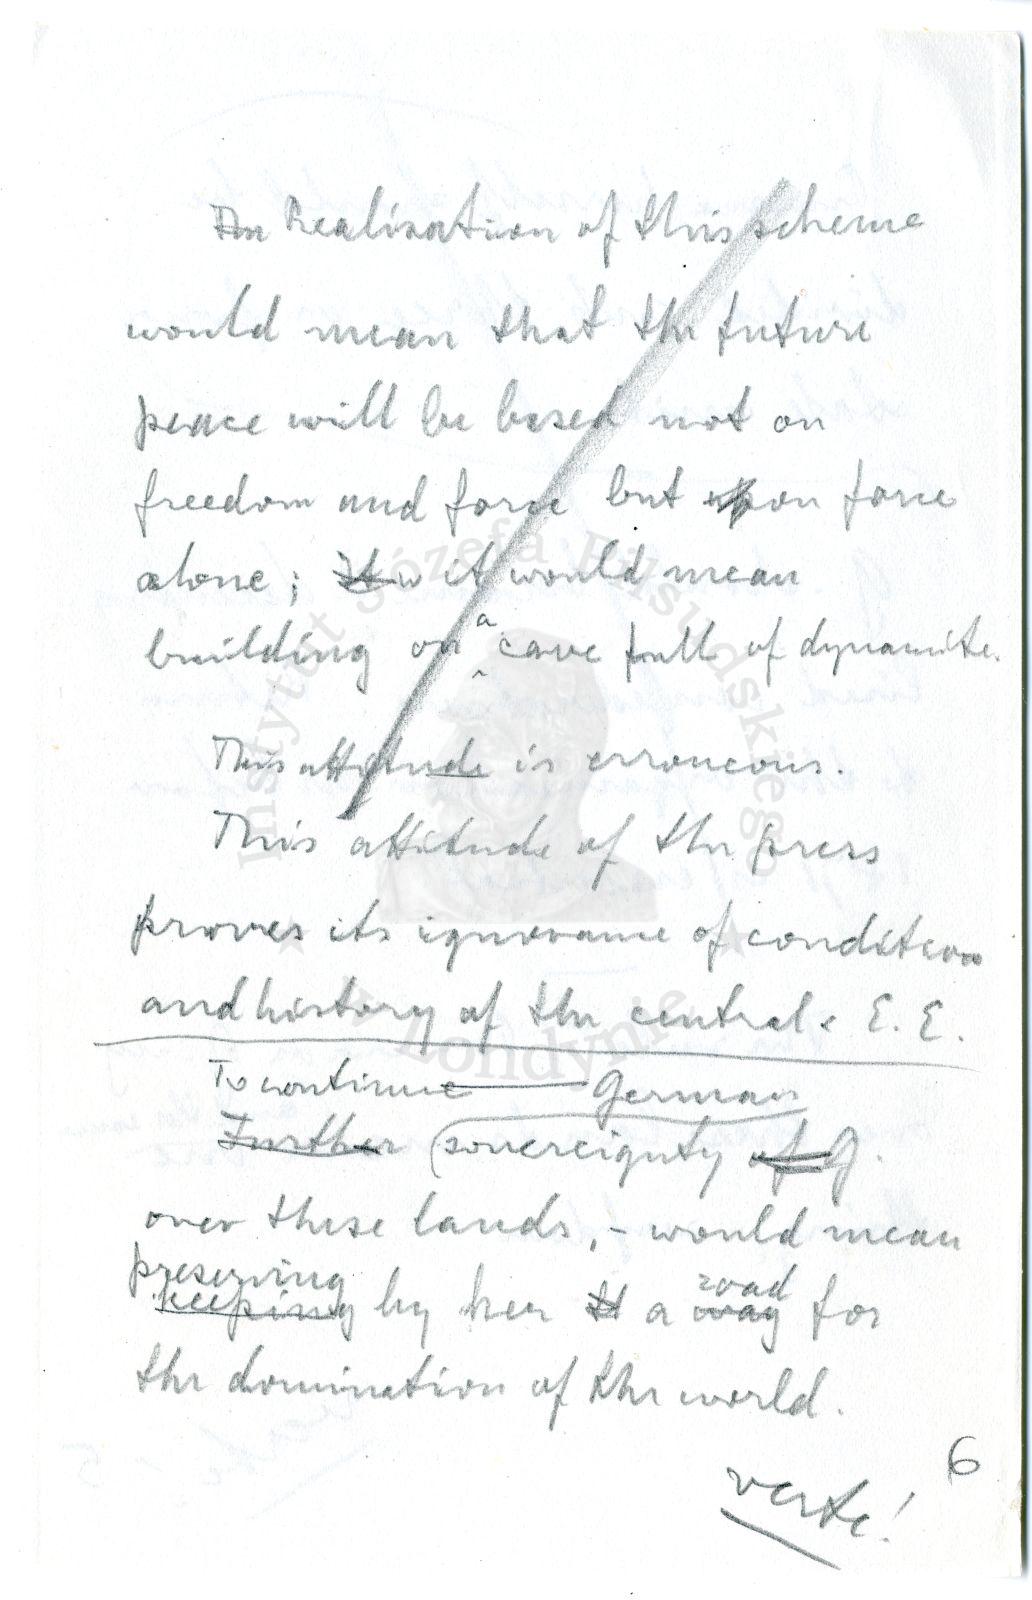 The Realisation of this scheme
would mean that the future
peace will be based not on
freedom and force but upon force
alone; It w it would mean
building on a cave full of dynamite.
This attitude is erroneous.
This attitude of the press
proves its ignorance of condition
and history of the central. E. E.
To continue German
Further sovereignty of G.
over these lands, - would mean
preserving
keeping by her tt a way road for
the domination of the world.
6
verte!
Instytut Józefa Piłsudskiego
w Londynie